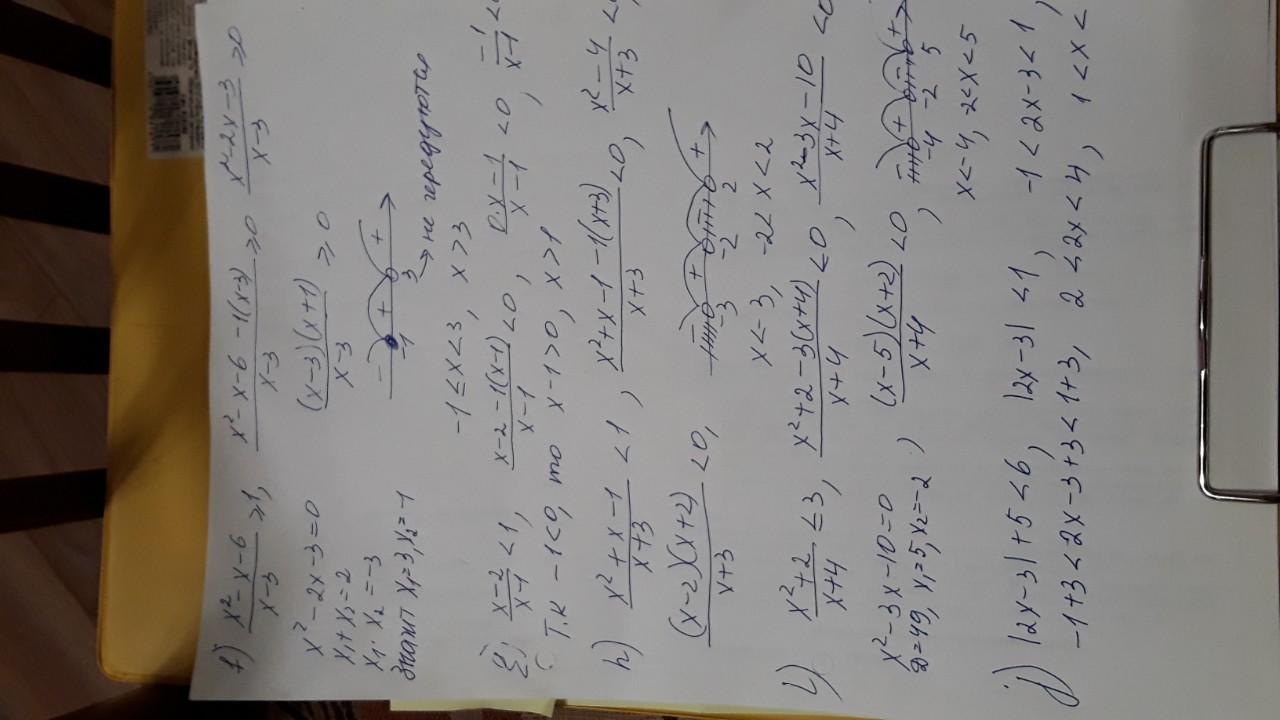 f) (x²-x-6)/(x-3) ≥1, (x²-x-6-1(x-3))/(x-3) ≥0 (x²-2x-3)/(x-3) ≥0
x²-2x-3=0 ((x-3)(x+1))/(x-3) ≥0
x₁+x₂=2
x₁·x₂=-3 - + +
значит x₁=3, x₂=-1 -1 3 → не чередуются
-1≤x<3, x>3
g) (x-2)/(x-1) <1, (x-2-1(x-1))/(x-1) <0, (0·x-1)/(x-1) <0, -1/(x-1) <0
т.к -1<0, то x-1>0, x>1
h) (x²+x-1)/(x+3) <1, (x²+x-1-1(x+3))/(x+3) <0, (x²-4)/(x+3) <0
((x-2)(x+2))/(x+3) <0, - + - +
-3 -2 2
x<-3, -2<x<2
i) (x²+2)/(x+4) ≤3, (x²+2-3(x+4))/(x+4) <0, (x²-3x-10)/(x+4) <0
x²-3x-10=0 ((x-5)(x+2))/(x+4) <0, - + - +
D=49, x₁=5, x₂=-2) -4 -2 5
x<-4, -2<x<5
j) |2x-3|+5<6, |2x-3|<1, -1<2x-3<1,
-1+3<2x-3+3<1+3, 2<2x<4, 1<x<